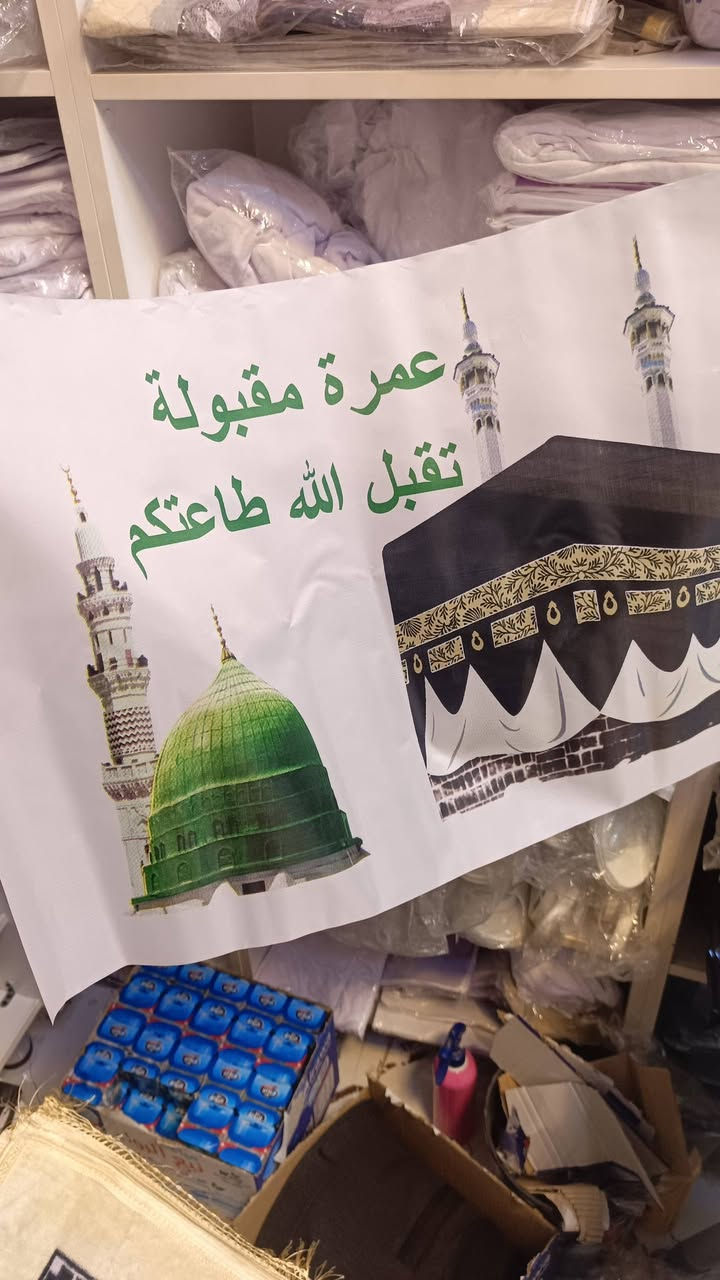 عمرة مقبولة
تقبل الله طاعتكم